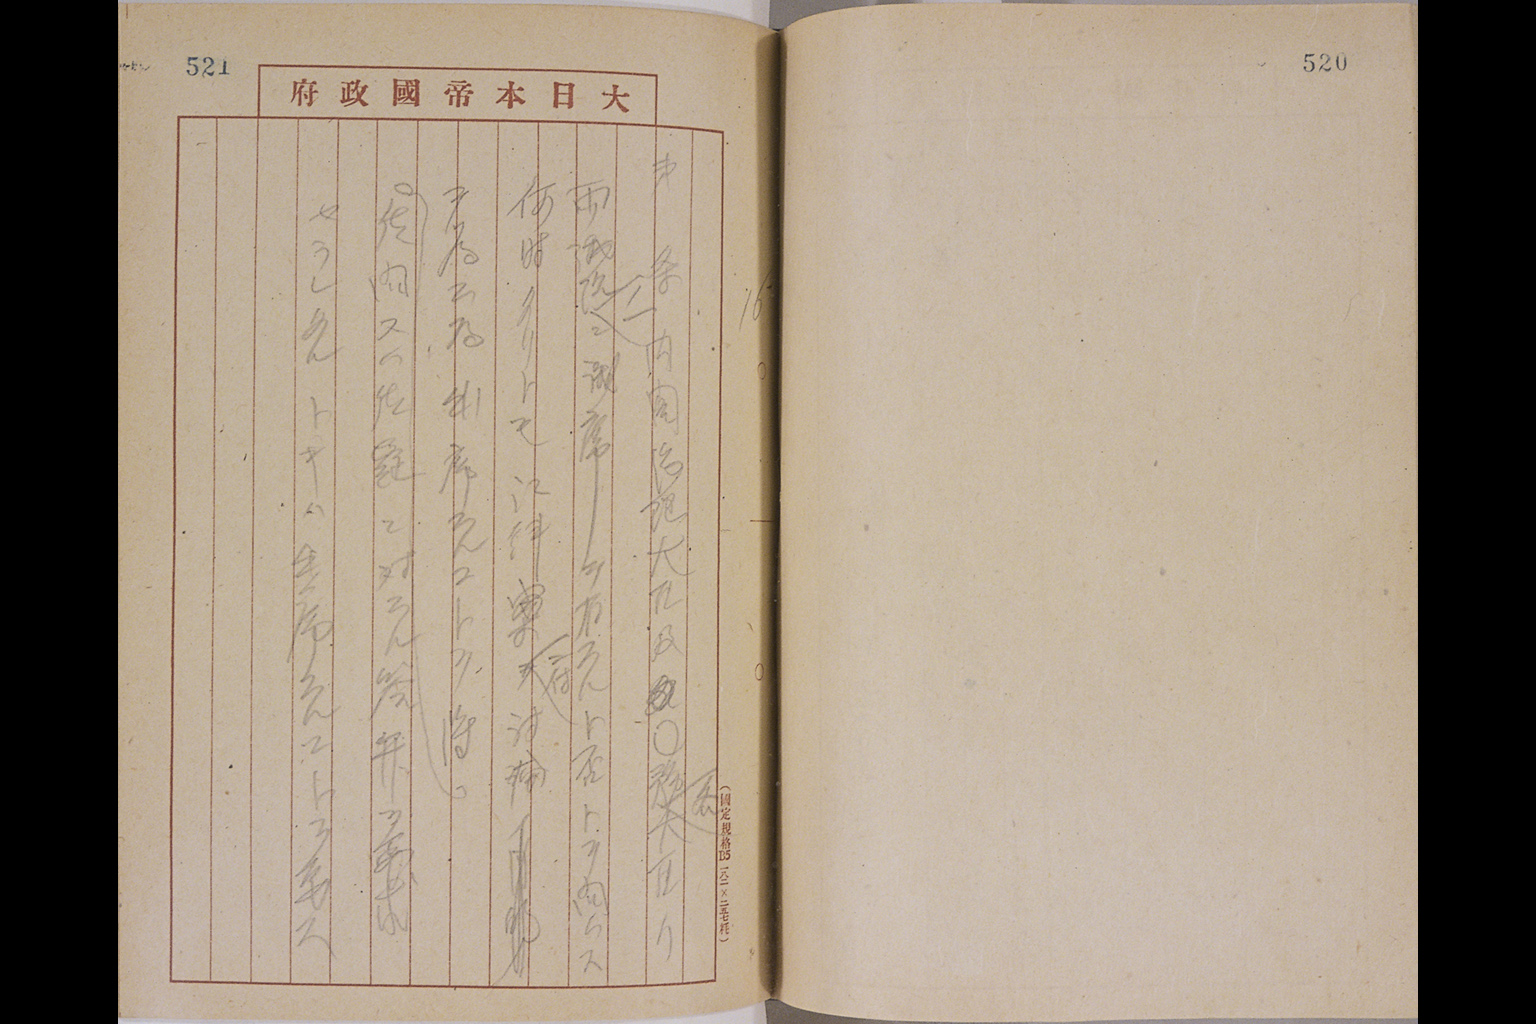 520
521
大日本帝國政府
才 条 内閣総理大臣及〇務大臣ハ
両議院ニ議席ヲ有スルト否トヲ問ハス
何時タリトモ法律案 討論
為出席スルコトヲ得
質問又ハ質疑ニ対スル答弁ヲ要求
セラレタルトキハ出席スルコトヲ要ス
(國定規格B5 一八二×二五七粍)